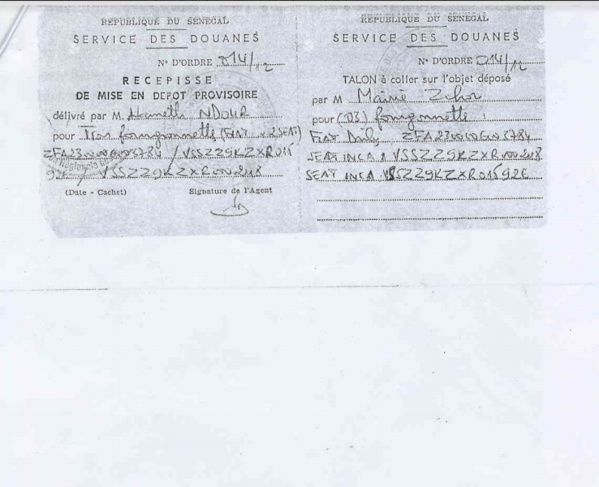 REPUBLIQUE DU SENEGAL
SERVICE DES DOUANES
N° D'ORDRE 214/12
RECEPISSE
DE MISE EN DEPOT PROVISOIRE
délivré par M. NDOUR
pour Trois fourgonnette (FIAT 2 SEAT)
/ VSSZZ9KZXR015
926 / VSSZZ9KZXR
(Date - Cachet) Signature de l'Agent
REPUBLIQUE DU SENEGAL
SERVICE DES DOUANES
N° D'ORDRE 214/12
TALON à coller sur l'objet déposé
par M
pour (03) fourgonnette
FIAT
SEAT INCA
SEAT INCA VSSZZ9KZXR015926